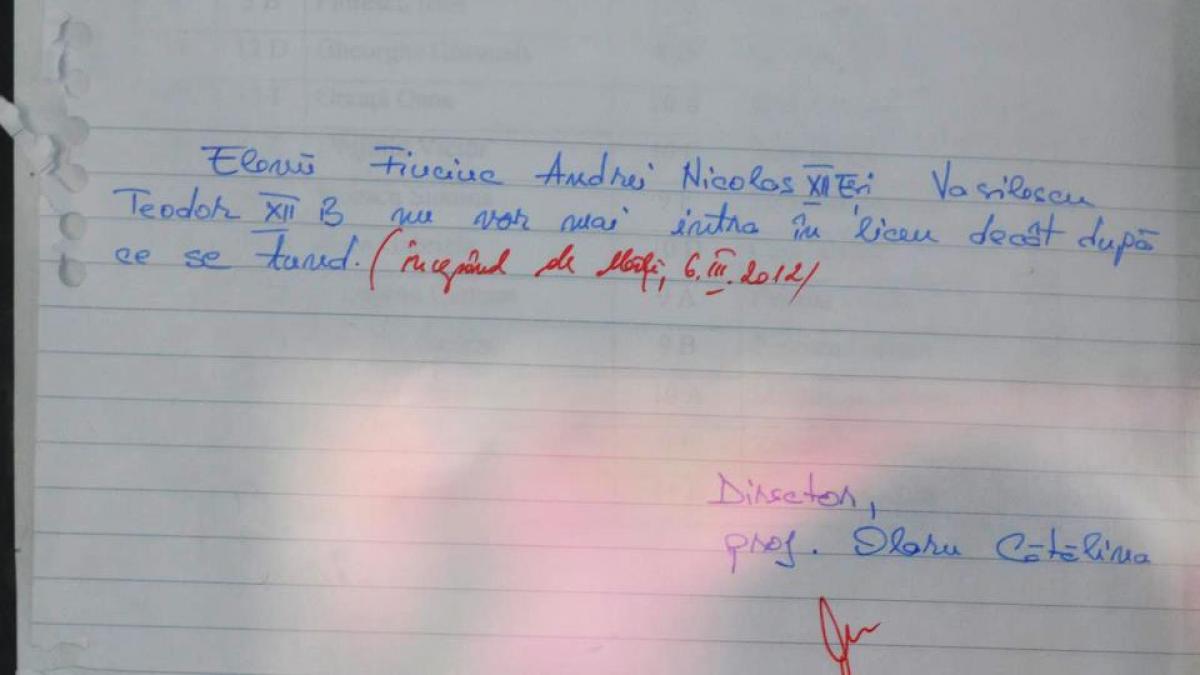 Elevii Fiuciuc Andrei Nicolas XII Eri Vasilescu
Teodor XII B nu vor mai intra în liceu decât după
ce se tund. (începând de Marți, 6.III.2012)
Director,
prof. Olaru Cătălina